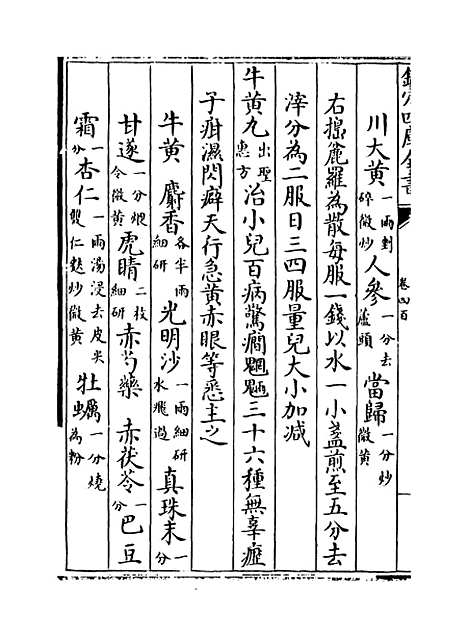 欽定四庫全書
卷四百
川大黃一兩剉碎微炒 人參一分去蘆頭 當歸一分炒微黃
右搗麄羅為散每服一錢以水一小盞煎至五分去
滓分為二服日三四服量兒大小加減
牛黃丸出聖惠方 治小兒百病驚癎魍魎三十六種無辜癧
子疳濕閃癖天行急黃赤眼等悉主之
牛黃 麝香各半兩細研 光明沙一兩細研水飛過 真珠末一分
甘遂一分煨令微黃 虎睛二枚細研 赤芍藥 赤茯苓一分 巴豆
霜一分 杏仁一兩湯浸去皮尖雙仁麩炒微黃 牡蠣一分燒為粉